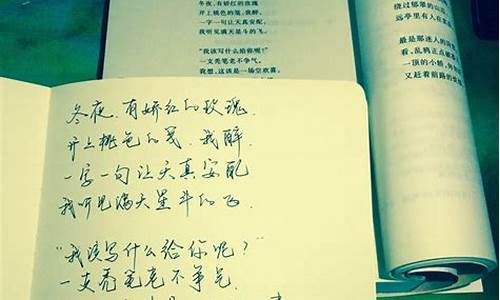 冬夜,有娇红的玫瑰
开上桃色的笺,我醉,
一字一句让天真安配,
我听见满天星斗的飞。
“我该写什么给你呢?”
一支秃笔老不争气。
我想,这该是一场空欢喜。
绕过郁翠的山
远亭里有人在
最是那迷人的
看,乱鸦正点破
一顶的小轿,
又赶着前路的
冬夜,有娇红的玫瑰,
开上桃色的笺,我醉,
一字一句让天真安配
我听见满天星斗的飞
“我该写什么给你呢?”
一支秃笔老不争气